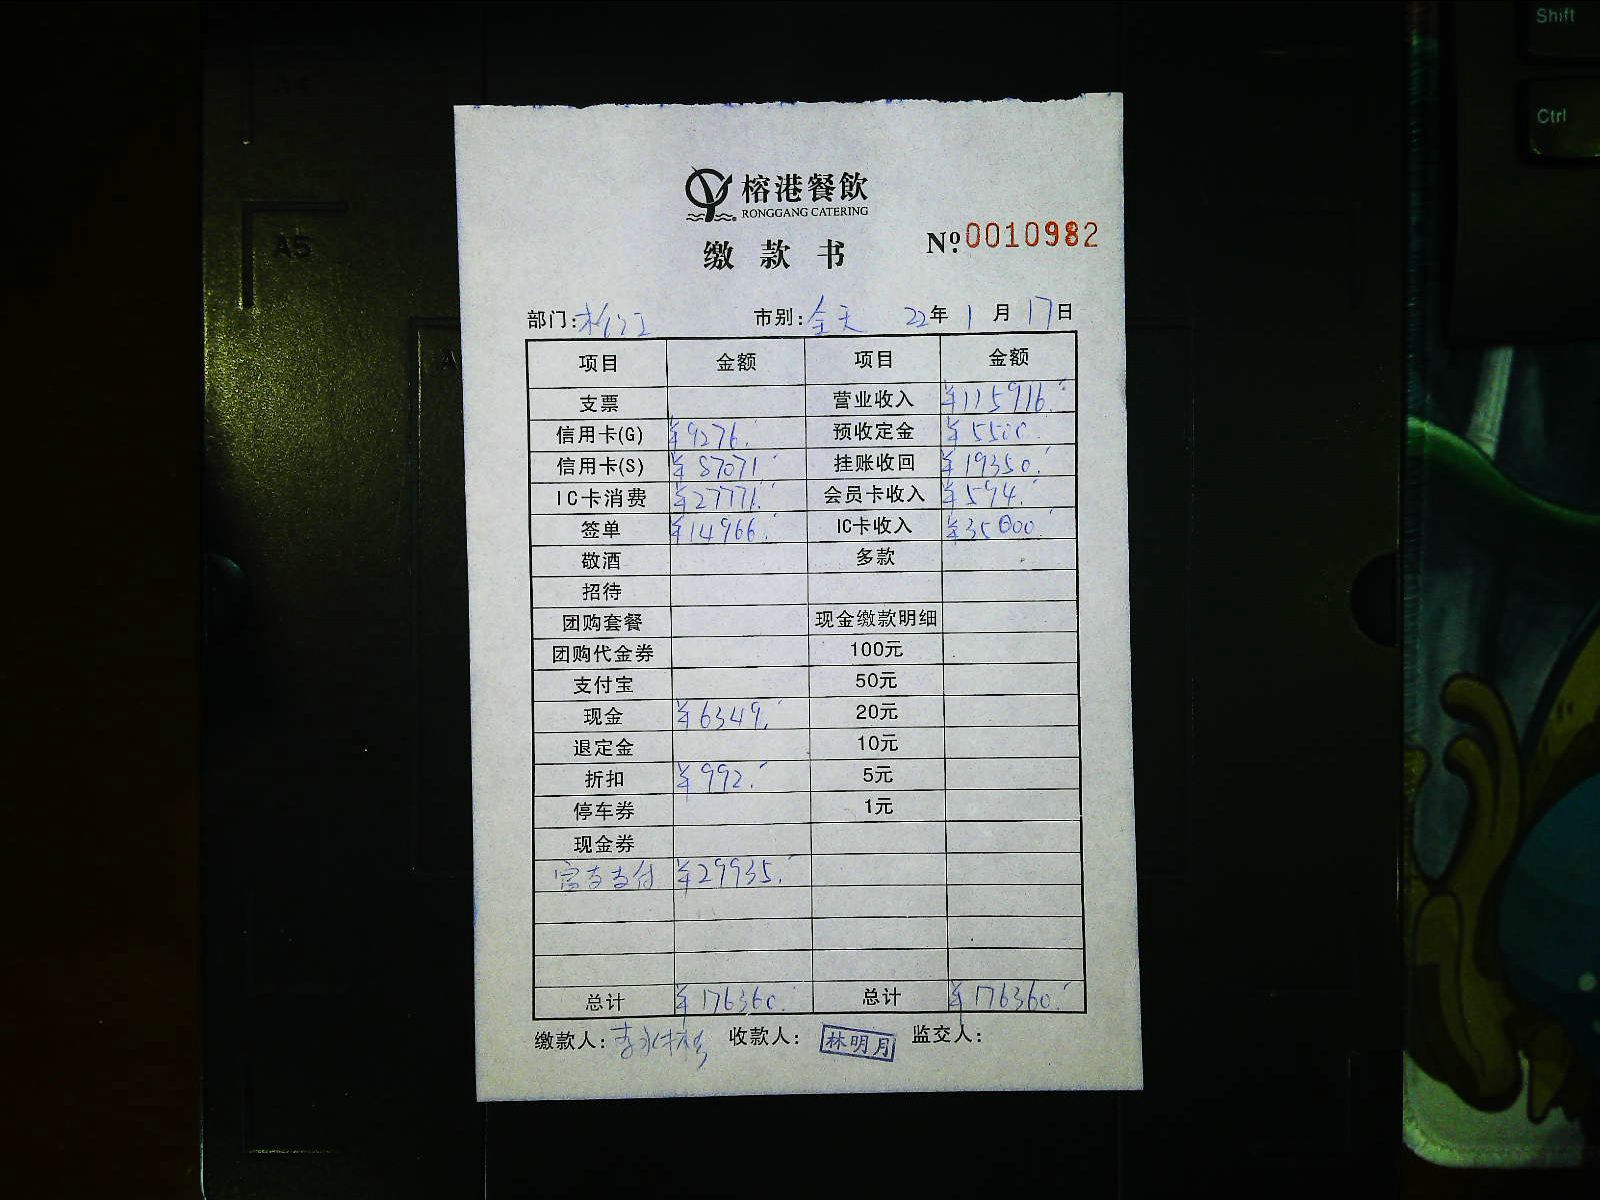 榕港餐飲
RONGGANG CATERING
缴款书 Nº.0010982
部门: 市别:全天 22年1月17日
项目 金额 项目 金额
支票 营业收入 ¥115916.-
信用卡(G) ¥9276.- 预收定金 ¥5500.-
信用卡(S) ¥87071.- 挂账收回 ¥19350.-
IC卡消费 ¥27771.- 会员卡收入 ¥594.-
签单 ¥14966.- IC卡收入 ¥35000.-
敬酒 多款
招待
团购套餐 现金缴款明细
团购代金券 100元
支付宝 50元
现金 ¥6349.- 20元
退定金 10元
折扣 ¥992.- 5元
停车券 1元
现金券
富友支付 ¥29935.-
总计 ¥176360.- 总计 ¥176360.-
缴款人: 收款人: 林明月 监交人:
A5
Shift
Ctrl